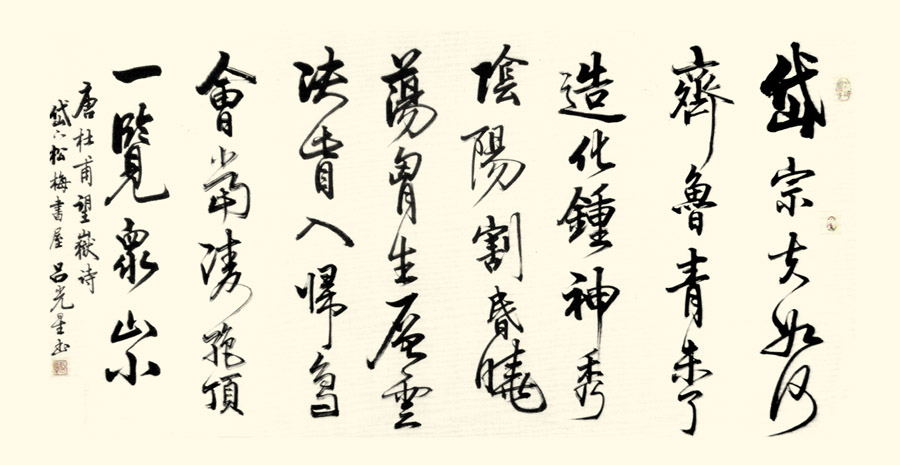 岱宗夫如何
齊魯青未了
造化鍾神秀
陰陽割昏曉
蕩胷生層雲
決眥入歸鳥
會當凌絕頂
一覽衆山小
唐杜甫望嶽诗
岱下松梅書屋呂光星书